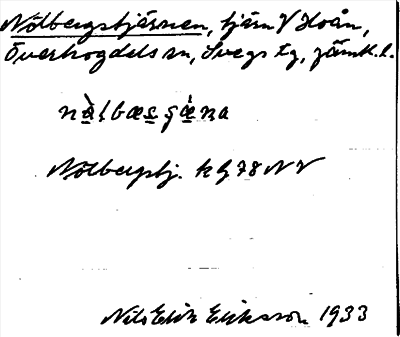 Nölbergstjärnen, tjärn V Hoån,
Överhogdals sn, Svegs tg, Jämtl. l.
Nölbergstj. kg 78 NV
Nils Erik Eriksson 1933